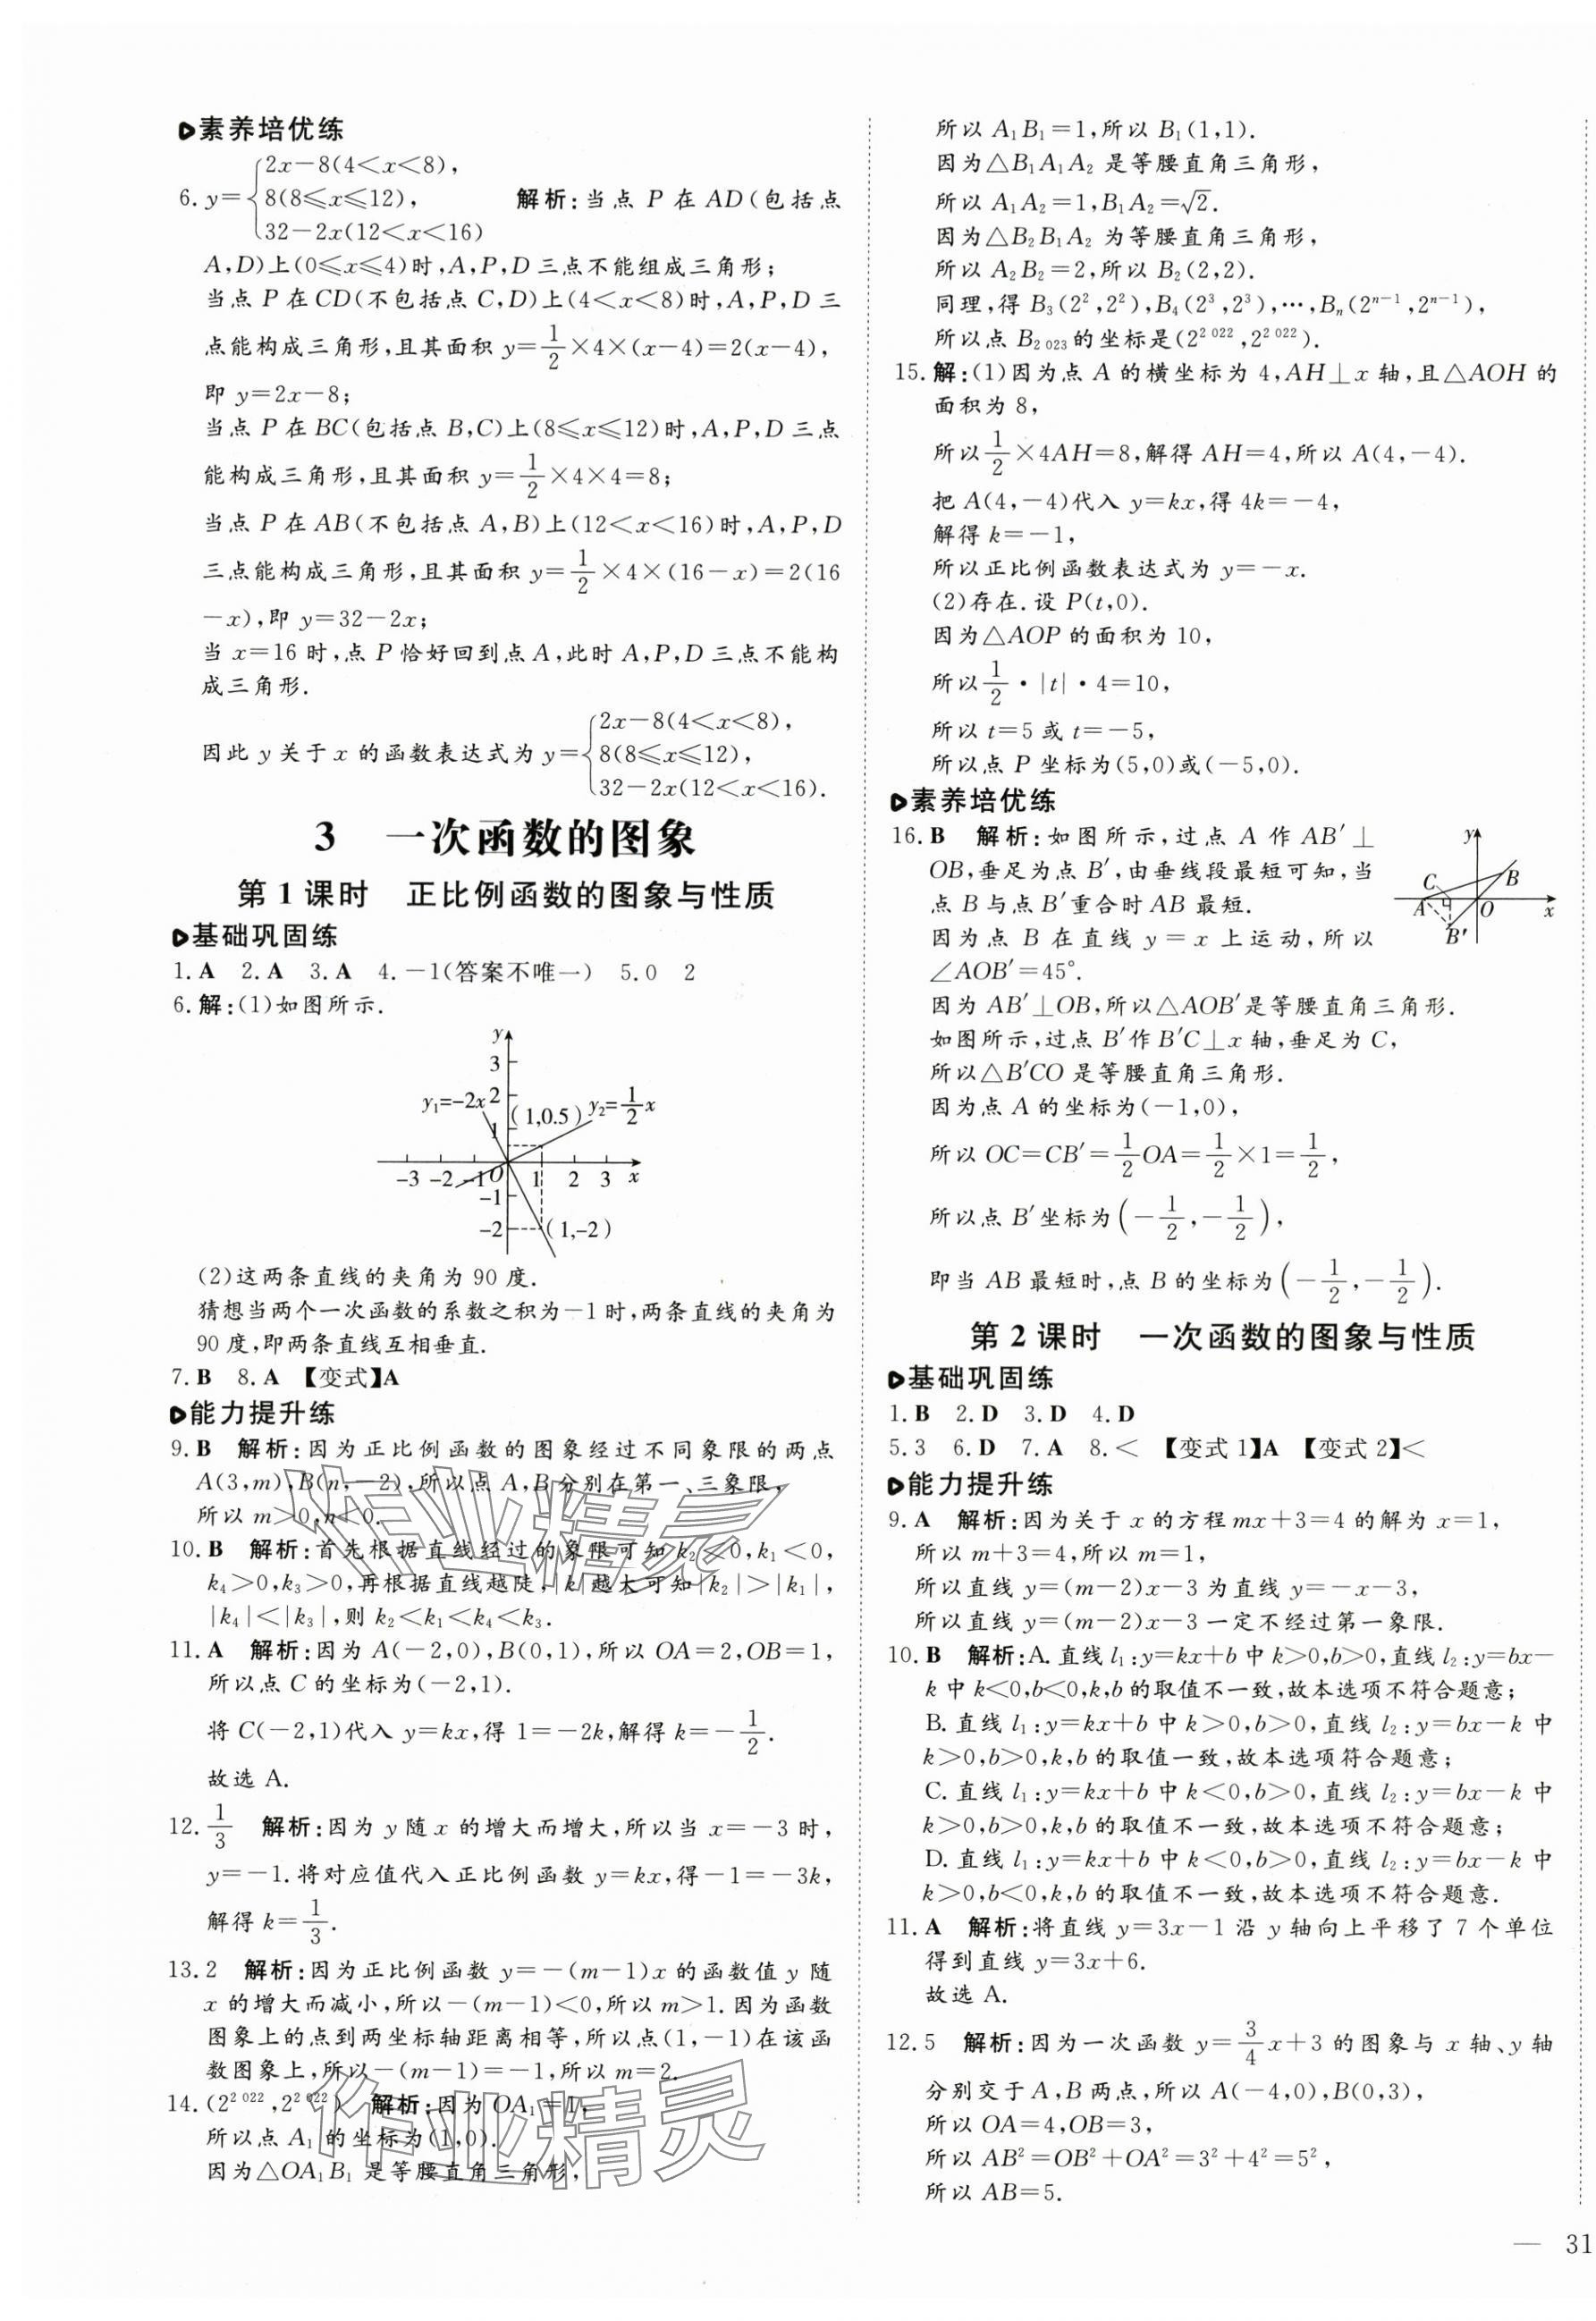 素养培优练
6. y={2x－8(4＜x＜8),
8(8≤x≤12),
32－2x(12＜x＜16)
解析:当点 P 在 AD(包括点
A,D)上(0≤x≤4)时,A,P,D 三点不能组成三角形;
当点 P 在 CD(不包括点 C,D)上(4＜x＜8)时,A,P,D 三
点能构成三角形,且其面积 y=1/2×4×(x－4)=2(x－4),
即 y=2x－8;
当点 P 在 BC(包括点 B,C)上(8≤x≤12)时,A,P,D 三点
能构成三角形,且其面积 y=1/2×4×4=8;
当点 P 在 AB(不包括点 A,B)上(12＜x＜16)时,A,P,D
三点能构成三角形,且其面积 y=1/2×4×(16－x)=2(16
－x),即 y=32－2x;
当 x=16 时,点 P 恰好回到点 A,此时 A,P,D 三点不能构
成三角形.
因此 y 关于 x 的函数表达式为 y={2x－8(4＜x＜8),
8(8≤x≤12),
32－2x(12＜x＜16).
3 一次函数的图象
第 1 课时 正比例函数的图象与性质
基础巩固练
1. A 2. A 3. A 4. －1(答案不唯一) 5. 0 2
6. 解:(1)如图所示.
y
3
y₁=-2x 2 (1,0.5) y₂=1/2x
1
-3 -2 -1 O 1 2 3 x
-1
-2 (1,-2)
(2)这两条直线的夹角为 90 度.
猜想当两个一次函数的系数之积为－1 时,两条直线的夹角为
90 度,即两条直线互相垂直.
7. B 8. A 【变式】A
能力提升练
9. B 解析:因为正比例函数的图象经过不同象限的两点
A(3,m),B(n,－2),所以点 A,B 分别在第一、三象限,
所以 m＞0,n＜0.
10. B 解析:首先根据直线经过的象限可知 k₂＜0,k₁＜0,
k₄＞0,k₃＞0,再根据直线越陡,|k|越大可知|k₂|＞|k₁|,
|k₄|＜|k₃|,则 k₂＜k₁＜k₄＜k₃.
11. A 解析:因为 A(－2,0),B(0,1),所以 OA=2,OB=1,
所以点 C 的坐标为(－2,1).
将 C(－2,1)代入 y=kx,得 1=－2k,解得 k=－1/2.
故选 A.
12. 1/3 解析:因为 y 随 x 的增大而增大,所以当 x=－3 时,
y=－1. 将对应值代入正比例函数 y=kx,得－1=－3k,
解得 k=1/3.
13. 2 解析:因为正比例函数 y=－(m－1)x 的函数值 y 随
x 的增大而减小,所以－(m－1)＜0,所以 m＞1. 因为函数
图象上的点到两坐标轴距离相等,所以点(1,－1)在该函
数图象上,所以－(m－1)=－1,所以 m=2.
14. (2²⁰²²,2²⁰²²) 解析:因为 OA₁=1,
所以点 A₁ 的坐标为(1,0).
因为△OA₁B₁ 是等腰直角三角形,
所以 A₁B₁=1,所以 B₁(1,1).
因为△B₁A₁A₂ 是等腰直角三角形,
所以 A₁A₂=1,B₁A₂=√2.
因为△B₂B₁A₂ 为等腰直角三角形,
所以 A₂B₂=2,所以 B₂(2,2).
同理,得 B₃(2²,2²),B₄(2³,2³),…,Bₙ(2ⁿ⁻¹,2ⁿ⁻¹),
所以点 B₂ ₀₂₃的坐标是(2² ⁰²²,2² ⁰²²).
15. 解:(1)因为点 A 的横坐标为 4,AH⊥x 轴,且△AOH 的
面积为 8,
所以1/2×4AH=8,解得 AH=4,所以 A(4,－4).
把 A(4,－4)代入 y=kx,得 4k=－4,
解得 k=－1,
所以正比例函数表达式为 y=－x.
(2)存在. 设 P(t,0).
因为△AOP 的面积为 10,
所以1/2·|t|·4=10,
所以 t=5 或 t=－5,
所以点 P 坐标为(5,0)或(－5,0).
素养培优练
16. B 解析:如图所示,过点 A 作 AB′⊥
OB,垂足为点 B′,由垂线段最短可知,当
点 B 与点 B′重合时 AB 最短.
因为点 B 在直线 y=x 上运动,所以
∠AOB′=45°.
y
C B
A O x
B′
因为 AB′⊥OB,所以△AOB′是等腰直角三角形.
如图所示,过点 B′作 B′C⊥x 轴,垂足为 C,
所以△B′CO 是等腰直角三角形.
因为点 A 的坐标为(－1,0),
所以 OC=CB′=1/2OA=1/2×1=1/2,
所以点 B′坐标为(－1/2,－1/2),
即当 AB 最短时,点 B 的坐标为(－1/2,－1/2).
第 2 课时 一次函数的图象与性质
基础巩固练
1. B 2. D 3. D 4. D
5. 3 6. D 7. A 8. ＜ 【变式 1】A 【变式 2】＜
能力提升练
9. A 解析:因为关于 x 的方程 mx＋3=4 的解为 x=1,
所以 m＋3=4,所以 m=1,
所以直线 y=(m－2)x－3 为直线 y=－x－3,
所以直线 y=(m－2)x－3 一定不经过第一象限.
10. B 解析:A. 直线 l₁:y=kx＋b 中 k＞0,b＞0,直线 l₂:y=bx－
k 中 k＜0,b＜0,k,b 的取值不一致,故本选项不符合题意;
B. 直线 l₁:y=kx＋b 中 k＞0,b＞0,直线 l₂:y=bx－k 中
k＞0,b＞0,k,b 的取值一致,故本选项符合题意;
C. 直线 l₁:y=kx＋b 中 k＜0,b＞0,直线 l₂:y=bx－k 中
k＞0,b＞0,k,b 的取值不一致,故本选项不符合题意;
D. 直线 l₁:y=kx＋b 中 k＜0,b＞0,直线 l₂:y=bx－k 中
k＞0,b＜0,k,b 的取值不一致,故本选项不符合题意.
11. A 解析:将直线 y=3x－1 沿 y 轴向上平移了 7 个单位
得到直线 y=3x＋6.
故选 A.
12. 5 解析:因为一次函数 y=3/4x＋3 的图象与 x 轴、y 轴
分别交于 A,B 两点,所以 A(－4,0),B(0,3),
所以 OA=4,OB=3,
所以 AB²=OB²＋OA²=3²＋4²=5²,
所以 AB=5.
— 31
作业精灵
作业精灵